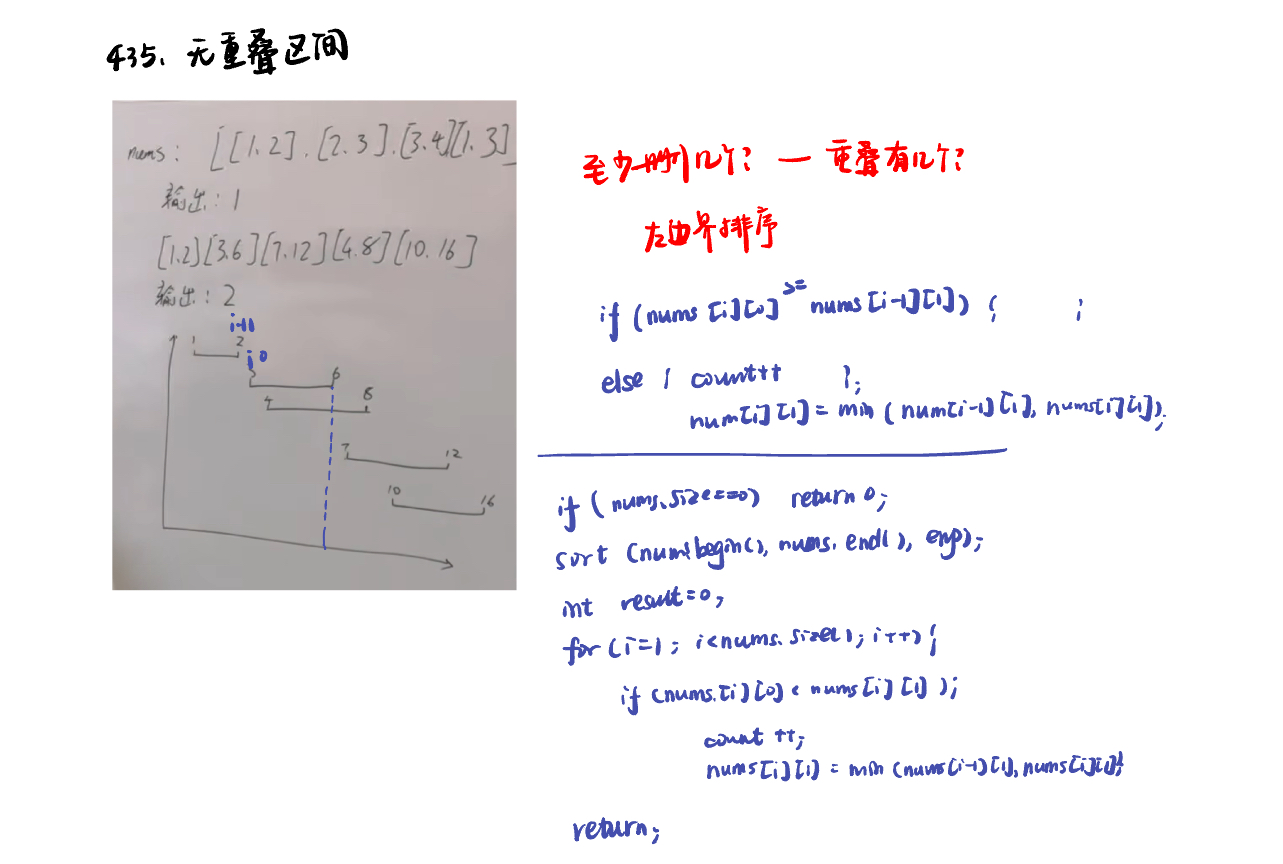 435. 无重叠区间
nums: [[1.2].[2.3].[3.4][1.3]
输出: 1
[1.2][3.6][7.12][4.8][10.16]
输出: 2
i-1 1
1 2
i 0
3 6
4 8
7 12
10 16
至少删几个? — 重叠有几个?
左边界排序
if (nums[i][0] >= nums[i-1][1]) { ;
else { count++ };
num[i][1] = min (num[i-1][1], nums[i][1]);
if (nums.size==0) return 0;
sort (nums.begin(), nums.end(), cmp);
int result=0;
for (i=1; i<nums.size(); i++) {
if (nums.[i][0] < nums[i][1]);
count ++;
nums[i][1] = min (nums[i-1][1], nums[i][1]);
return;